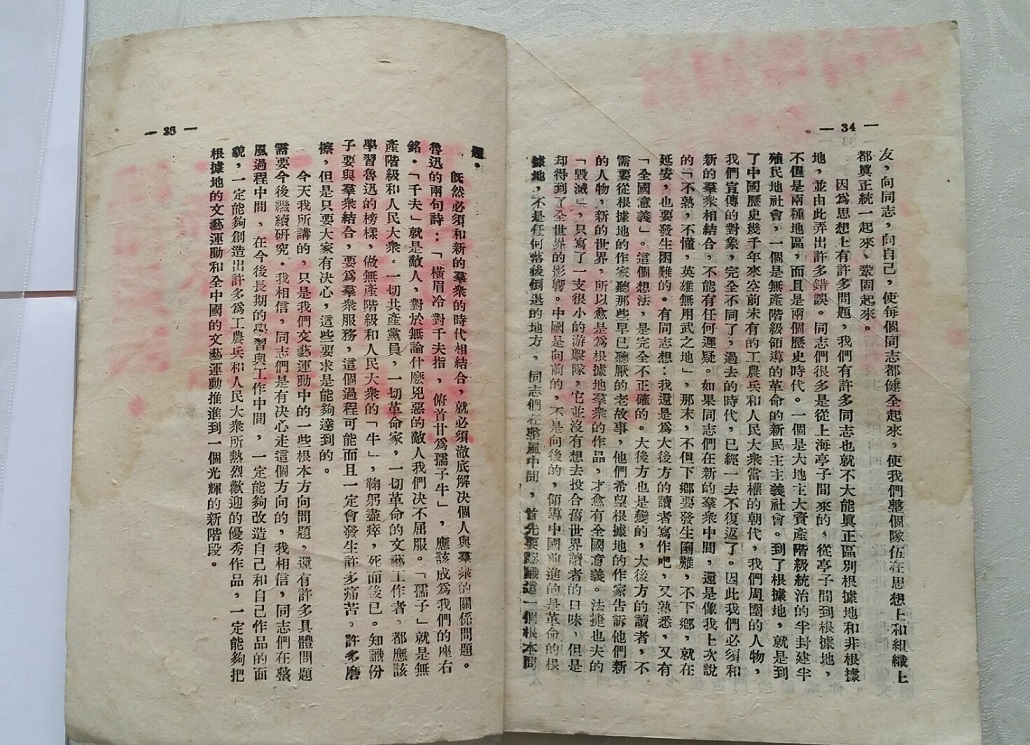 — 34 —
友，向同志，向自己，使每個同志都健全起來，使我們整個隊伍在思想上和組織上
都眞正統一起來、鞏固起來。
因爲思想上有許多問題，我們有許多同志也就不大能眞正區別根據地和非根據
地，並由此弄出許多錯誤。同志們很多是從上海亭子間來的，從亭子間到根據地，
不但是兩種地區，而且是兩個歷史時代。一個是大地主大資產階級統治的半封建半
殖民地社會，一個是無產階級領導的革命的新民主主義社會。到了根據地，就是到
了中國歷史幾千年來空前未有的工農兵和人民大衆當權的朝代，我們周圍的人物，
我們宣傳的對象，完全不同了，過去的時代，已經一去不復返了。因此我們必須和
新的羣衆相結合，不能有任何遲疑。如果同志們在新的羣衆中間，還是像我上次說
的「不熟，不懂，英雄無用武之地」，那末，不但下鄉要發生困難，不下鄉，就在
延安，也要發生困難的。有同志想：我還是爲大後方的讀者寫作吧，又熟悉，又有
「全國意義」。這個想法，是完全不正確的。大後方也是變的，大後方的讀者，不
需要從根據地的作家聽那些早已聽厭的老故事，他們希望根據地的作家告訴他們新
的人物，新的世界，所以愈是爲根據地羣衆的作品，才愈有全國意義。法捷也夫的
「毀滅」，只寫了一支很小的游擊隊，它並沒有想去投合舊世界讀者的口味，但是
却得到了全世界的影響。中國是向前的，不是向後的，領導中國前進的是革命的根
據地，不是任何落後倒退的地方，同志們在整風中間，首先要認識這一個根本問
— 35 —
題。
旣然必須和新的羣衆的時代相結合，就必須澈底解決個人與羣衆的關係問題。
魯迅的兩句詩：「橫眉冷對千夫指，俯首甘爲孺子牛」，應該成爲我們的座右
銘。「千夫」就是敵人，對於無論什麽兇惡的敵人我們決不屈服。「孺子」就是無
產階級和人民大衆。一切共產黨員，一切革命家，一切革命的文藝工作者，都應該
學習魯迅的榜樣，做無產階級和人民大衆的「牛」，鞠躬盡瘁，死而後已。知識份
子要與羣衆結合，要爲羣衆服務，這個過程可能而且一定會發生許多痛苦，許多磨
擦，但是只要大家有決心，這些要求是能夠達到的。
今天我所講的，只是我們文藝運動中的一些根本方向問題，還有許多具體問題
需要今後繼續研究。我相信，同志們是有決心走這個方向的，我相信，同志們在整
風過程中間，在今後長期的學習與工作中間，一定能夠改造自己和自己作品的面
貌，一定能夠創造出許多爲工農兵和人民大衆所熱烈歡迎的優秀作品，一定能夠把
根據地的文藝運動和全中國的文藝運動推進到一個光輝的新階段。